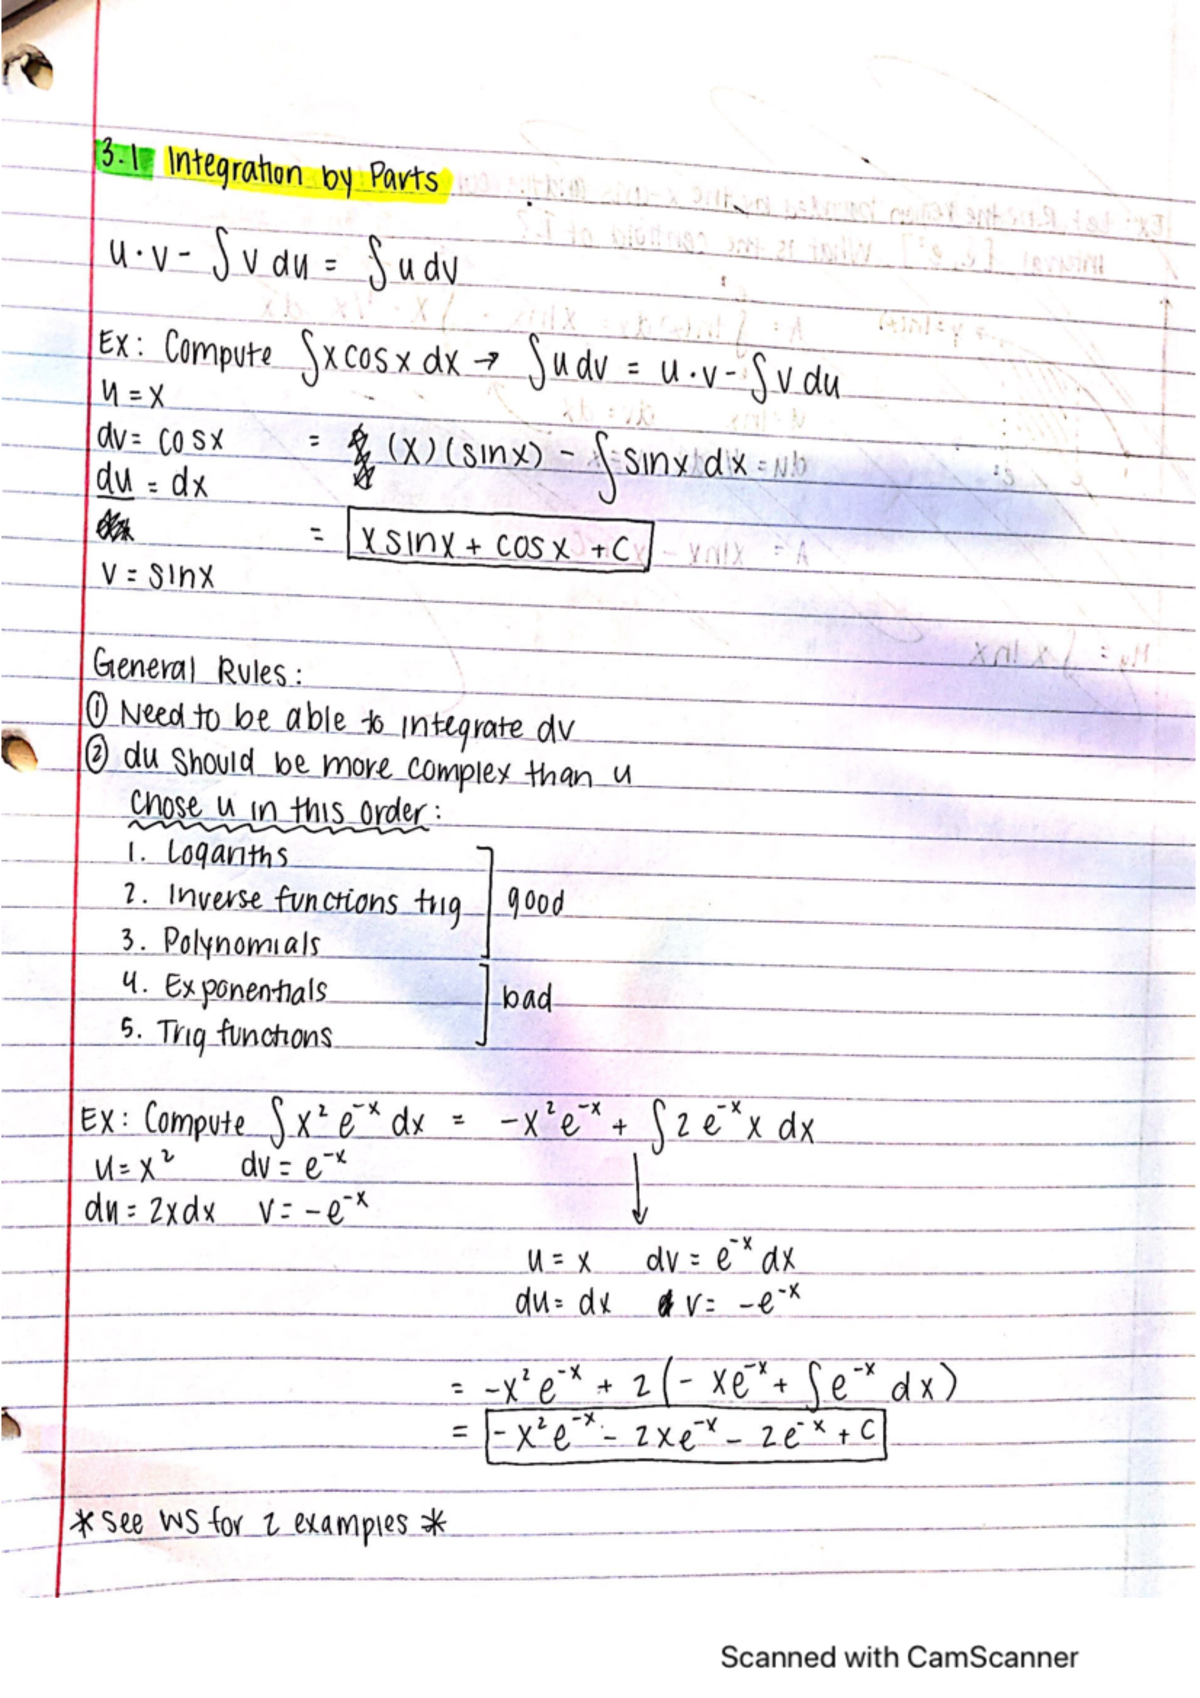 3.1 Integration by Parts
u·v - ∫v du = ∫u dv
Ex: Compute ∫x cos x dx → ∫u dv = u·v - ∫v du
u = x
dv = cos x = (x)(sin x) - ∫sin x dx
du = dx
= x sin x + cos x + C
v = sin x
General Rules:
① Need to be able to integrate dv
② du should be more complex than u
Chose u in this order:
1. Logariths
2. Inverse functions trig good
3. Polynomials
4. Exponentials bad
5. Trig functions
Ex: Compute ∫x² e⁻ˣ dx = -x²e⁻ˣ + ∫2e⁻ˣx dx
u = x² dv = e⁻ˣ
du = 2xdx v = -e⁻ˣ
u = x dv = e⁻ˣ dx
du = dx v = -e⁻ˣ
= -x²e⁻ˣ + 2(- xe⁻ˣ + ∫e⁻ˣ dx)
= -x²e⁻ˣ - 2xe⁻ˣ - 2e⁻ˣ + C
* See WS for 2 examples *
Scanned with CamScanner